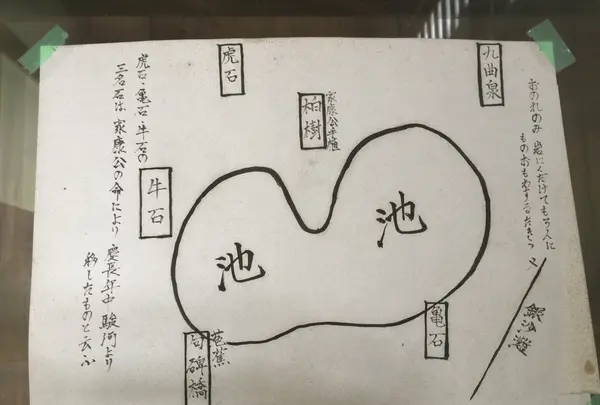 九曲泉
おのれのみ 岩にくだけてもろ人に
ものおもわする
銀沙灘
家康公手植
柏樹
虎石
池
池
亀石
芭蕉
句碑橋
牛石
虎石・亀石・牛石の
三名石は 家康公の命により
慶長年中 駿河より
移したものと云ふ